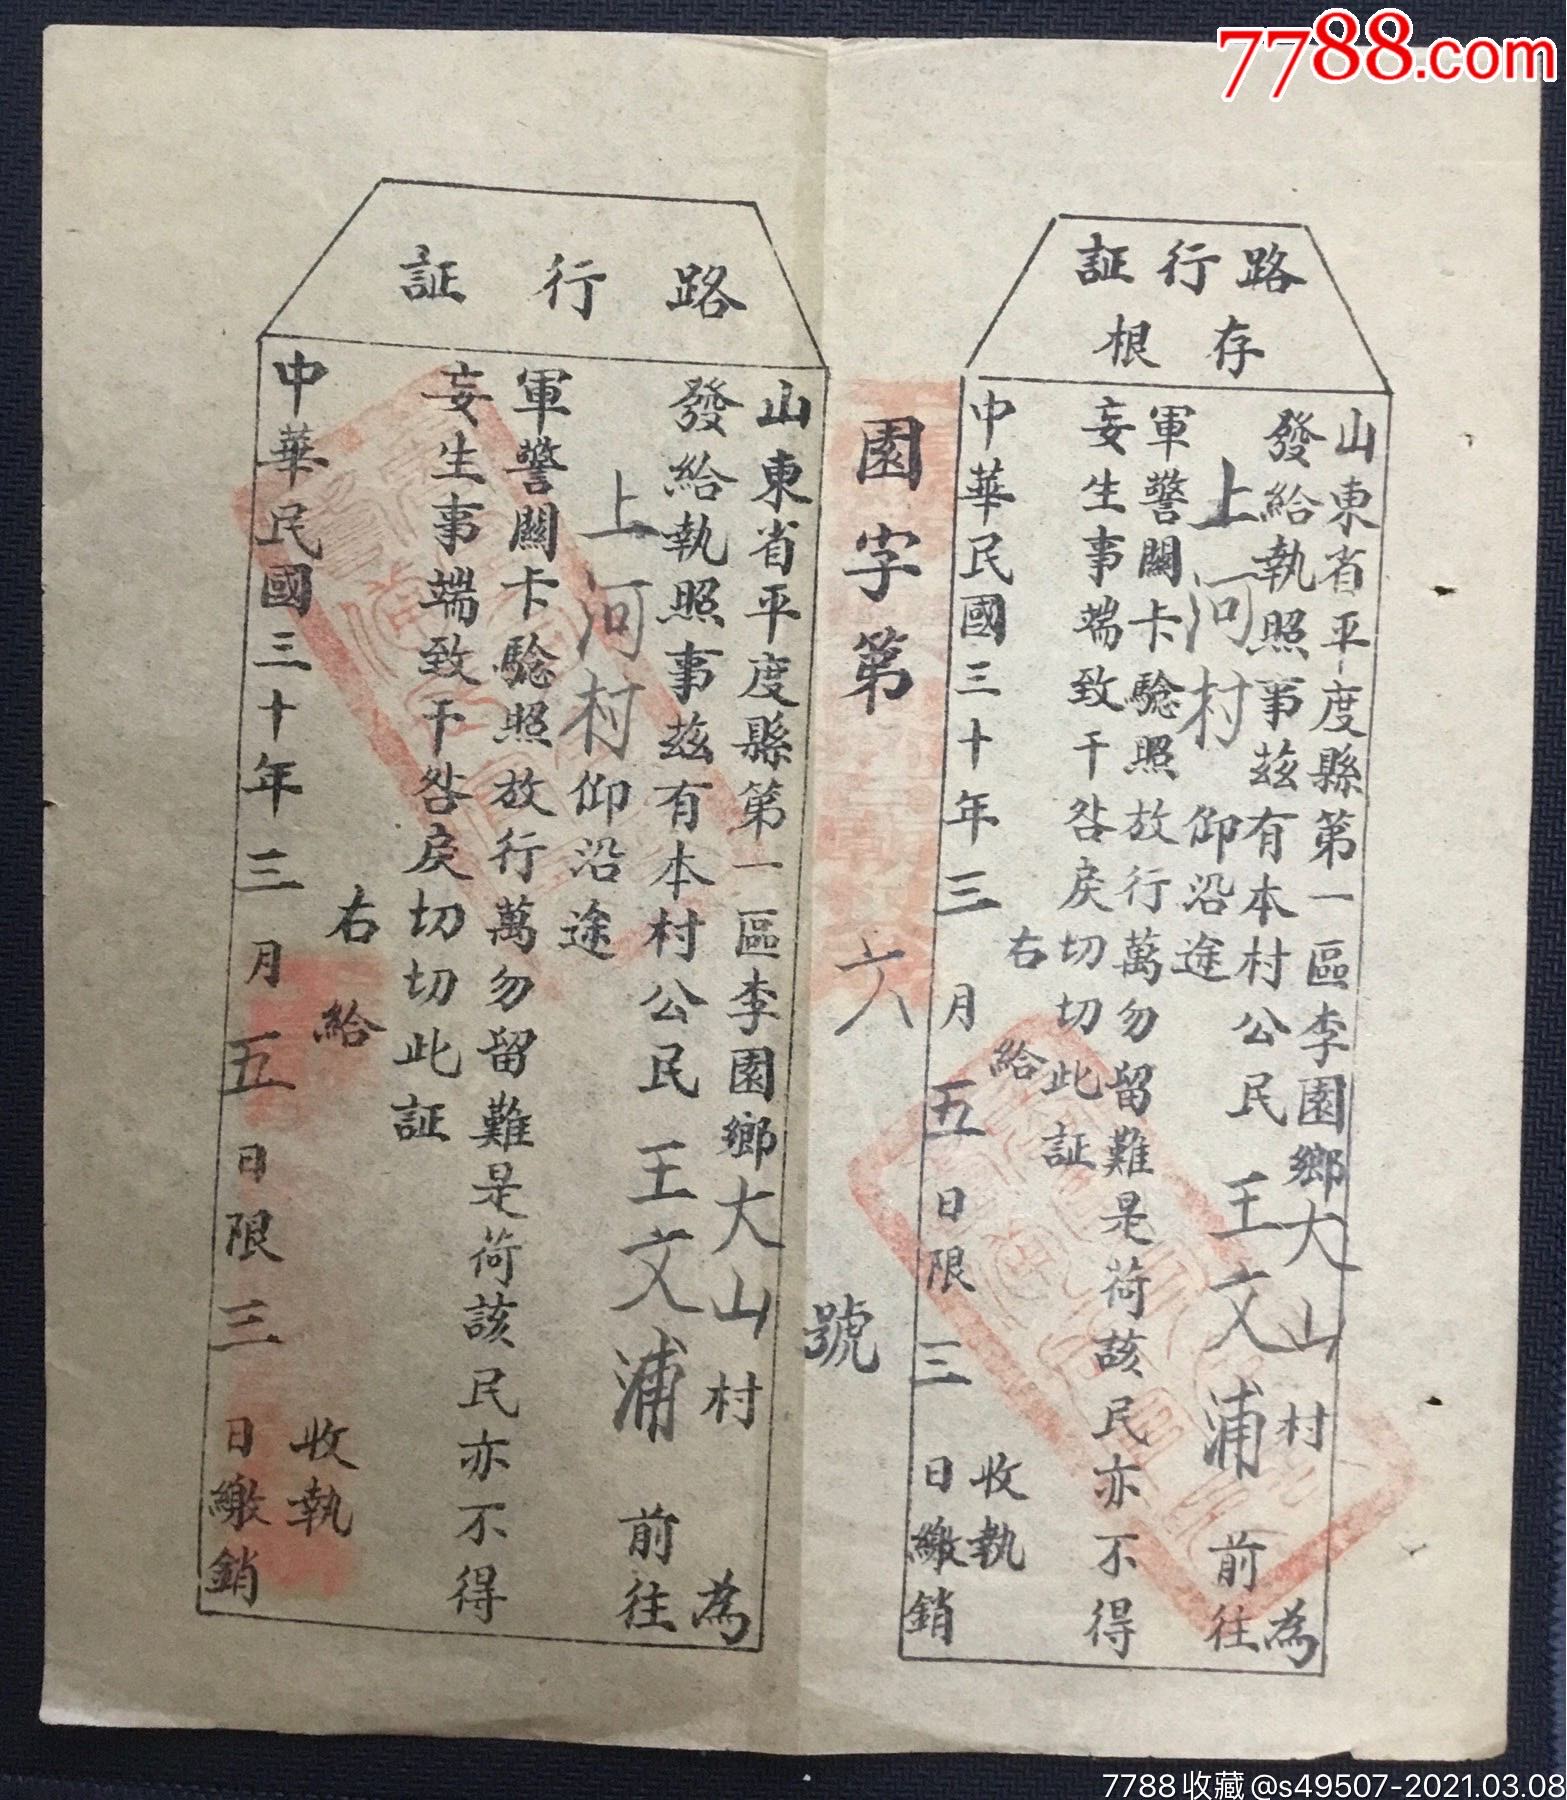 7788.com
路行証
存根
山東省平度縣第一區李園鄉大山村為
發給執照事茲有本村公民王文浦前往
上河村仰沿途
軍警關卡驗照放行萬勿留難是荷該民亦不得
妄生事端致干咎戾切切此証
右給收執
中華民國三十年三月五日限三日繳銷
園字第六號
路行証
山東省平度縣第一區李園鄉大山村為
發給執照事茲有本村公民王文浦前往
上河村仰沿途
軍警關卡驗照放行萬勿留難是荷該民亦不得
妄生事端致干咎戾切切此証
右給收執
中華民國三十年三月五日限三日繳銷
7788收藏@s49507-2021.03.08